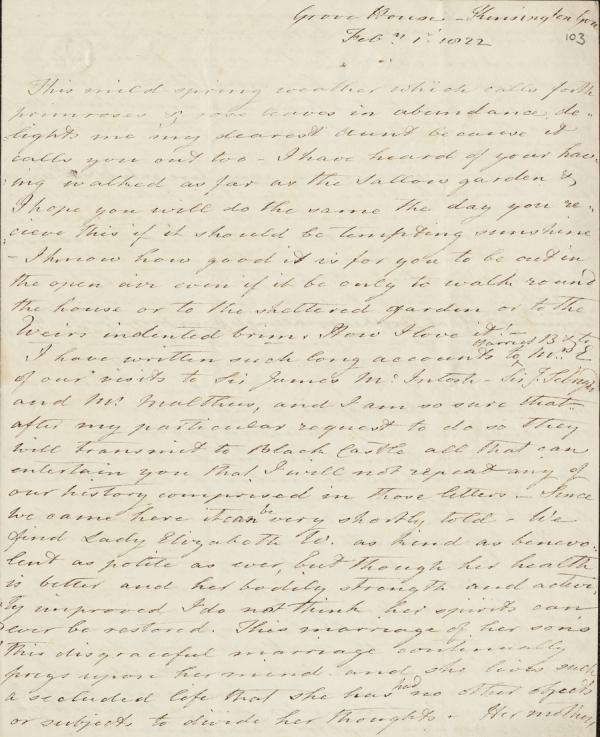 Grove House - Kensington Gore
Feby. 1st. 1822
103
This mild spring weather which calls forth
primroses & rose leaves in abundance de-
lights me my dearest aunt because it
calls you out too - I have heard of your hav-
ing walked as far as the Sallow garden &
I hope you will do the same the day you re-
cieve this if it should be tempting sunshine
- I know how good it is for you to be out in
the open air even if it be only to walk round
the house or to the sheltered garden or to the
Weirs indented brim. How I love it!
Harriet B & to
I have written such long accounts to Mrs E
of our visits to Sir James McIntosh - Sir J. Sebright
and Mr Malthus, and I am so sure that
after my particular request to do so they
will transmit to Black Castle all that can
entertain you that I will not repeat any of
our history comprised in those letters - Since
we came here it can be very shortly told - We
find Lady Elizabeth W. as kind as benevo-
lent as polite as ever, but though her health
is better and her bodily strength and activi-
ty improved I do not think her spirits can
ever be restored. This marriage of her son's
this disgraceful marriage continually
preys upon her mind and she lives such
a secluded life that she has had no other objects
or subjects to divide her thoughts - Her mother,